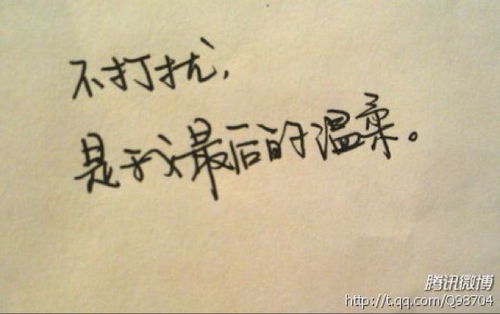 不打扰,
是我最后的温柔。
腾讯微博
http://t.qq.com/Q98704